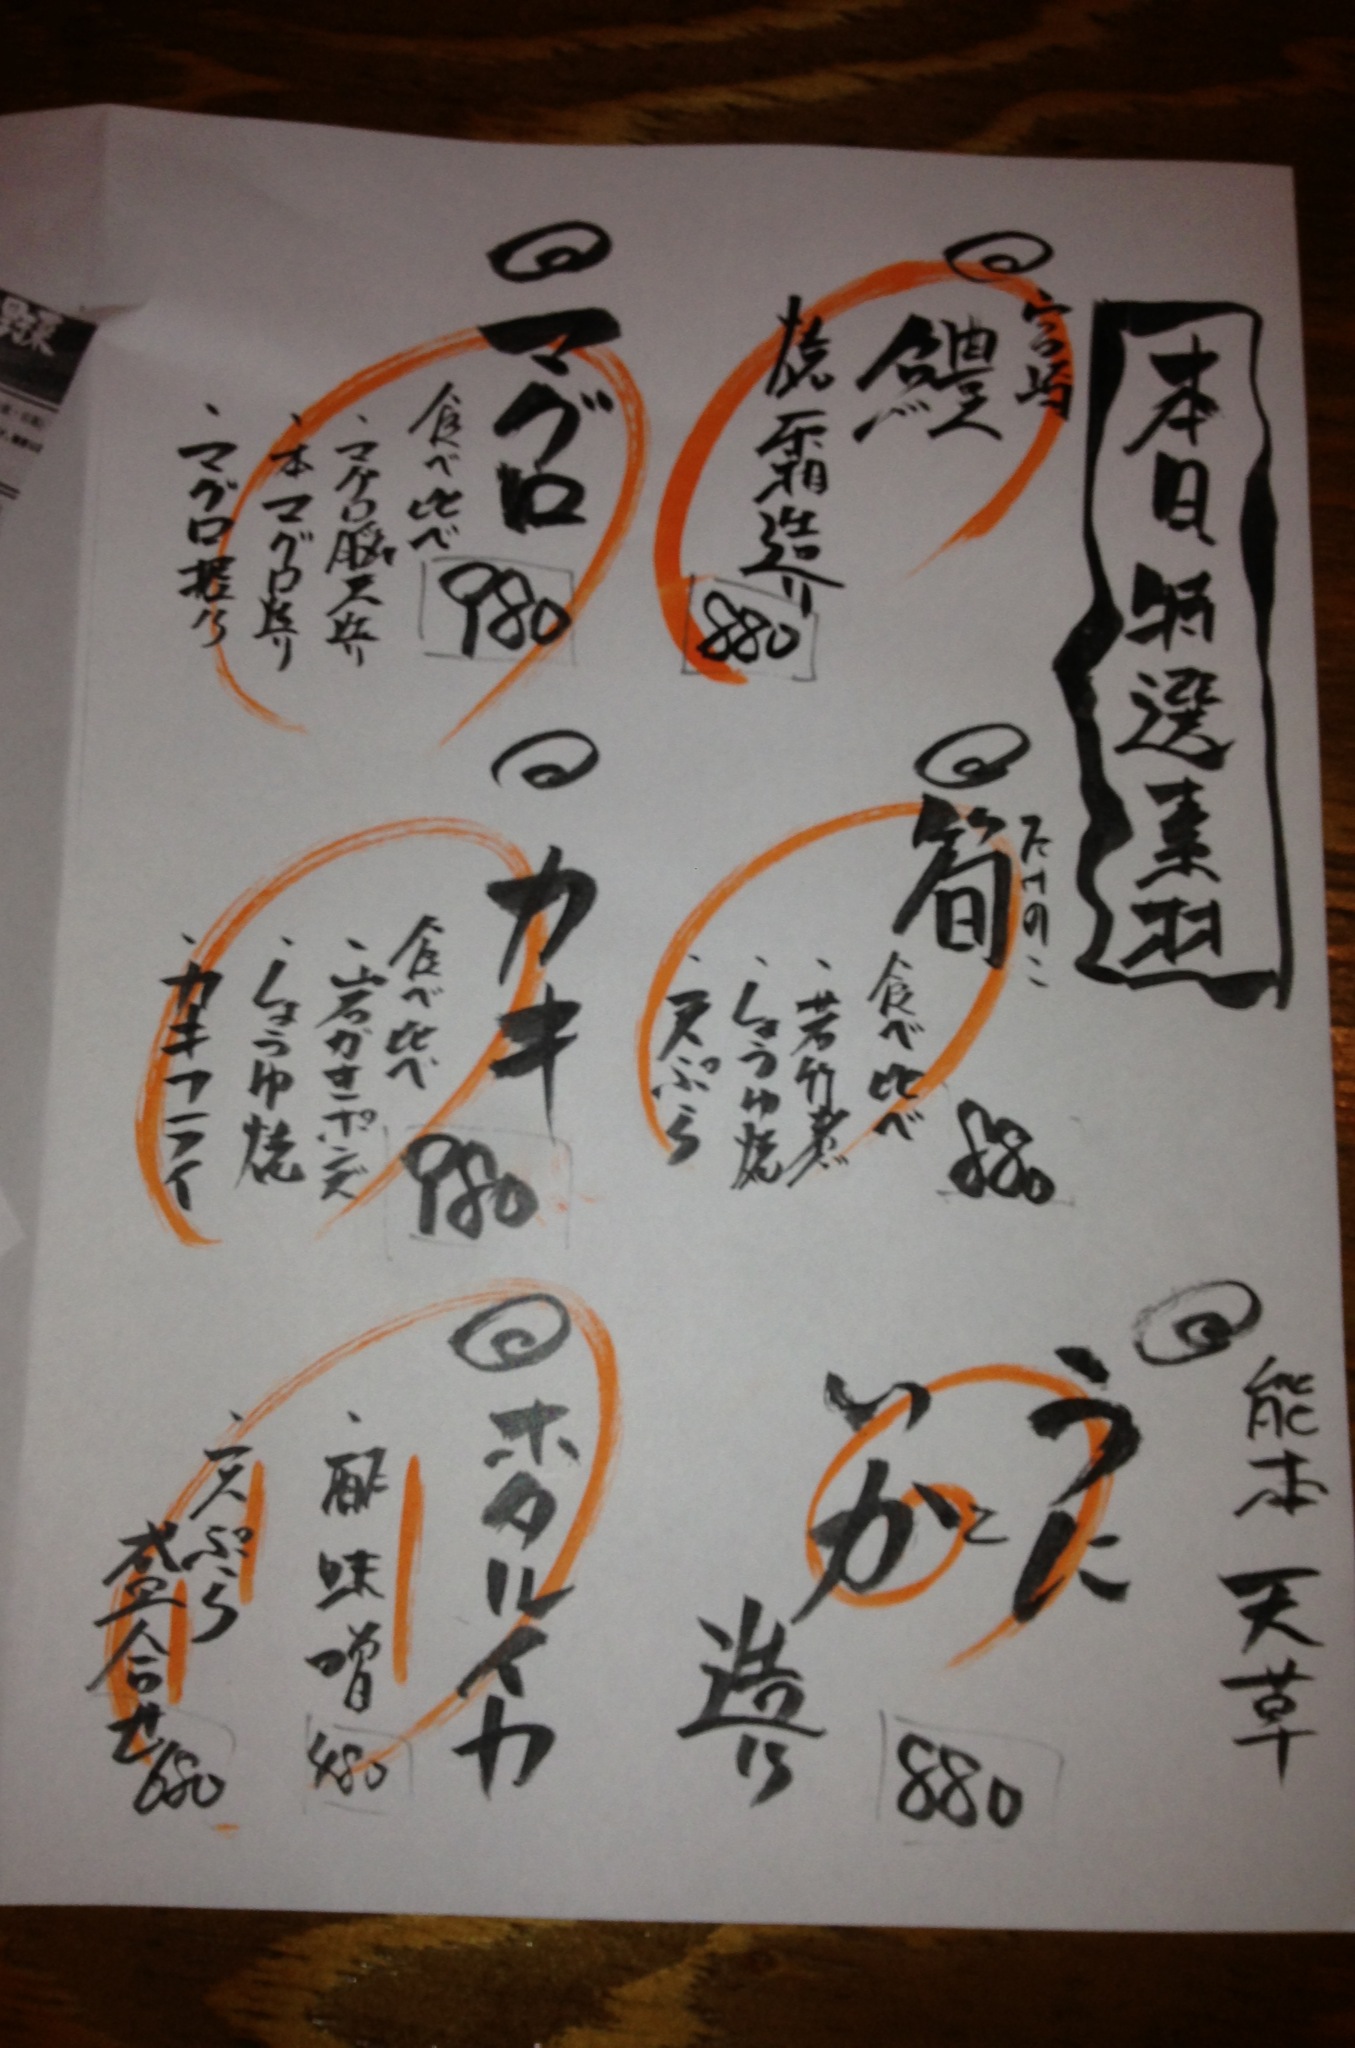 本日特選素材
宮崎
鱧
焼霜造り
880
マグロ
食べ比べ
980
・マグロ脳天造り
・本マグロ造り
・マグロ握り
たけのこ
筍
食べ比べ
880
・若竹煮
・しょうゆ焼
・天ぷら
カキ
食べ比べ
980
・岩がきポン酢
・しょうゆ焼
・カキフライ
熊本 天草
うに
と
いか
造り
880
ホタルイカ
・酢味噌
480
・天ぷら
盛合せ
680
野菜